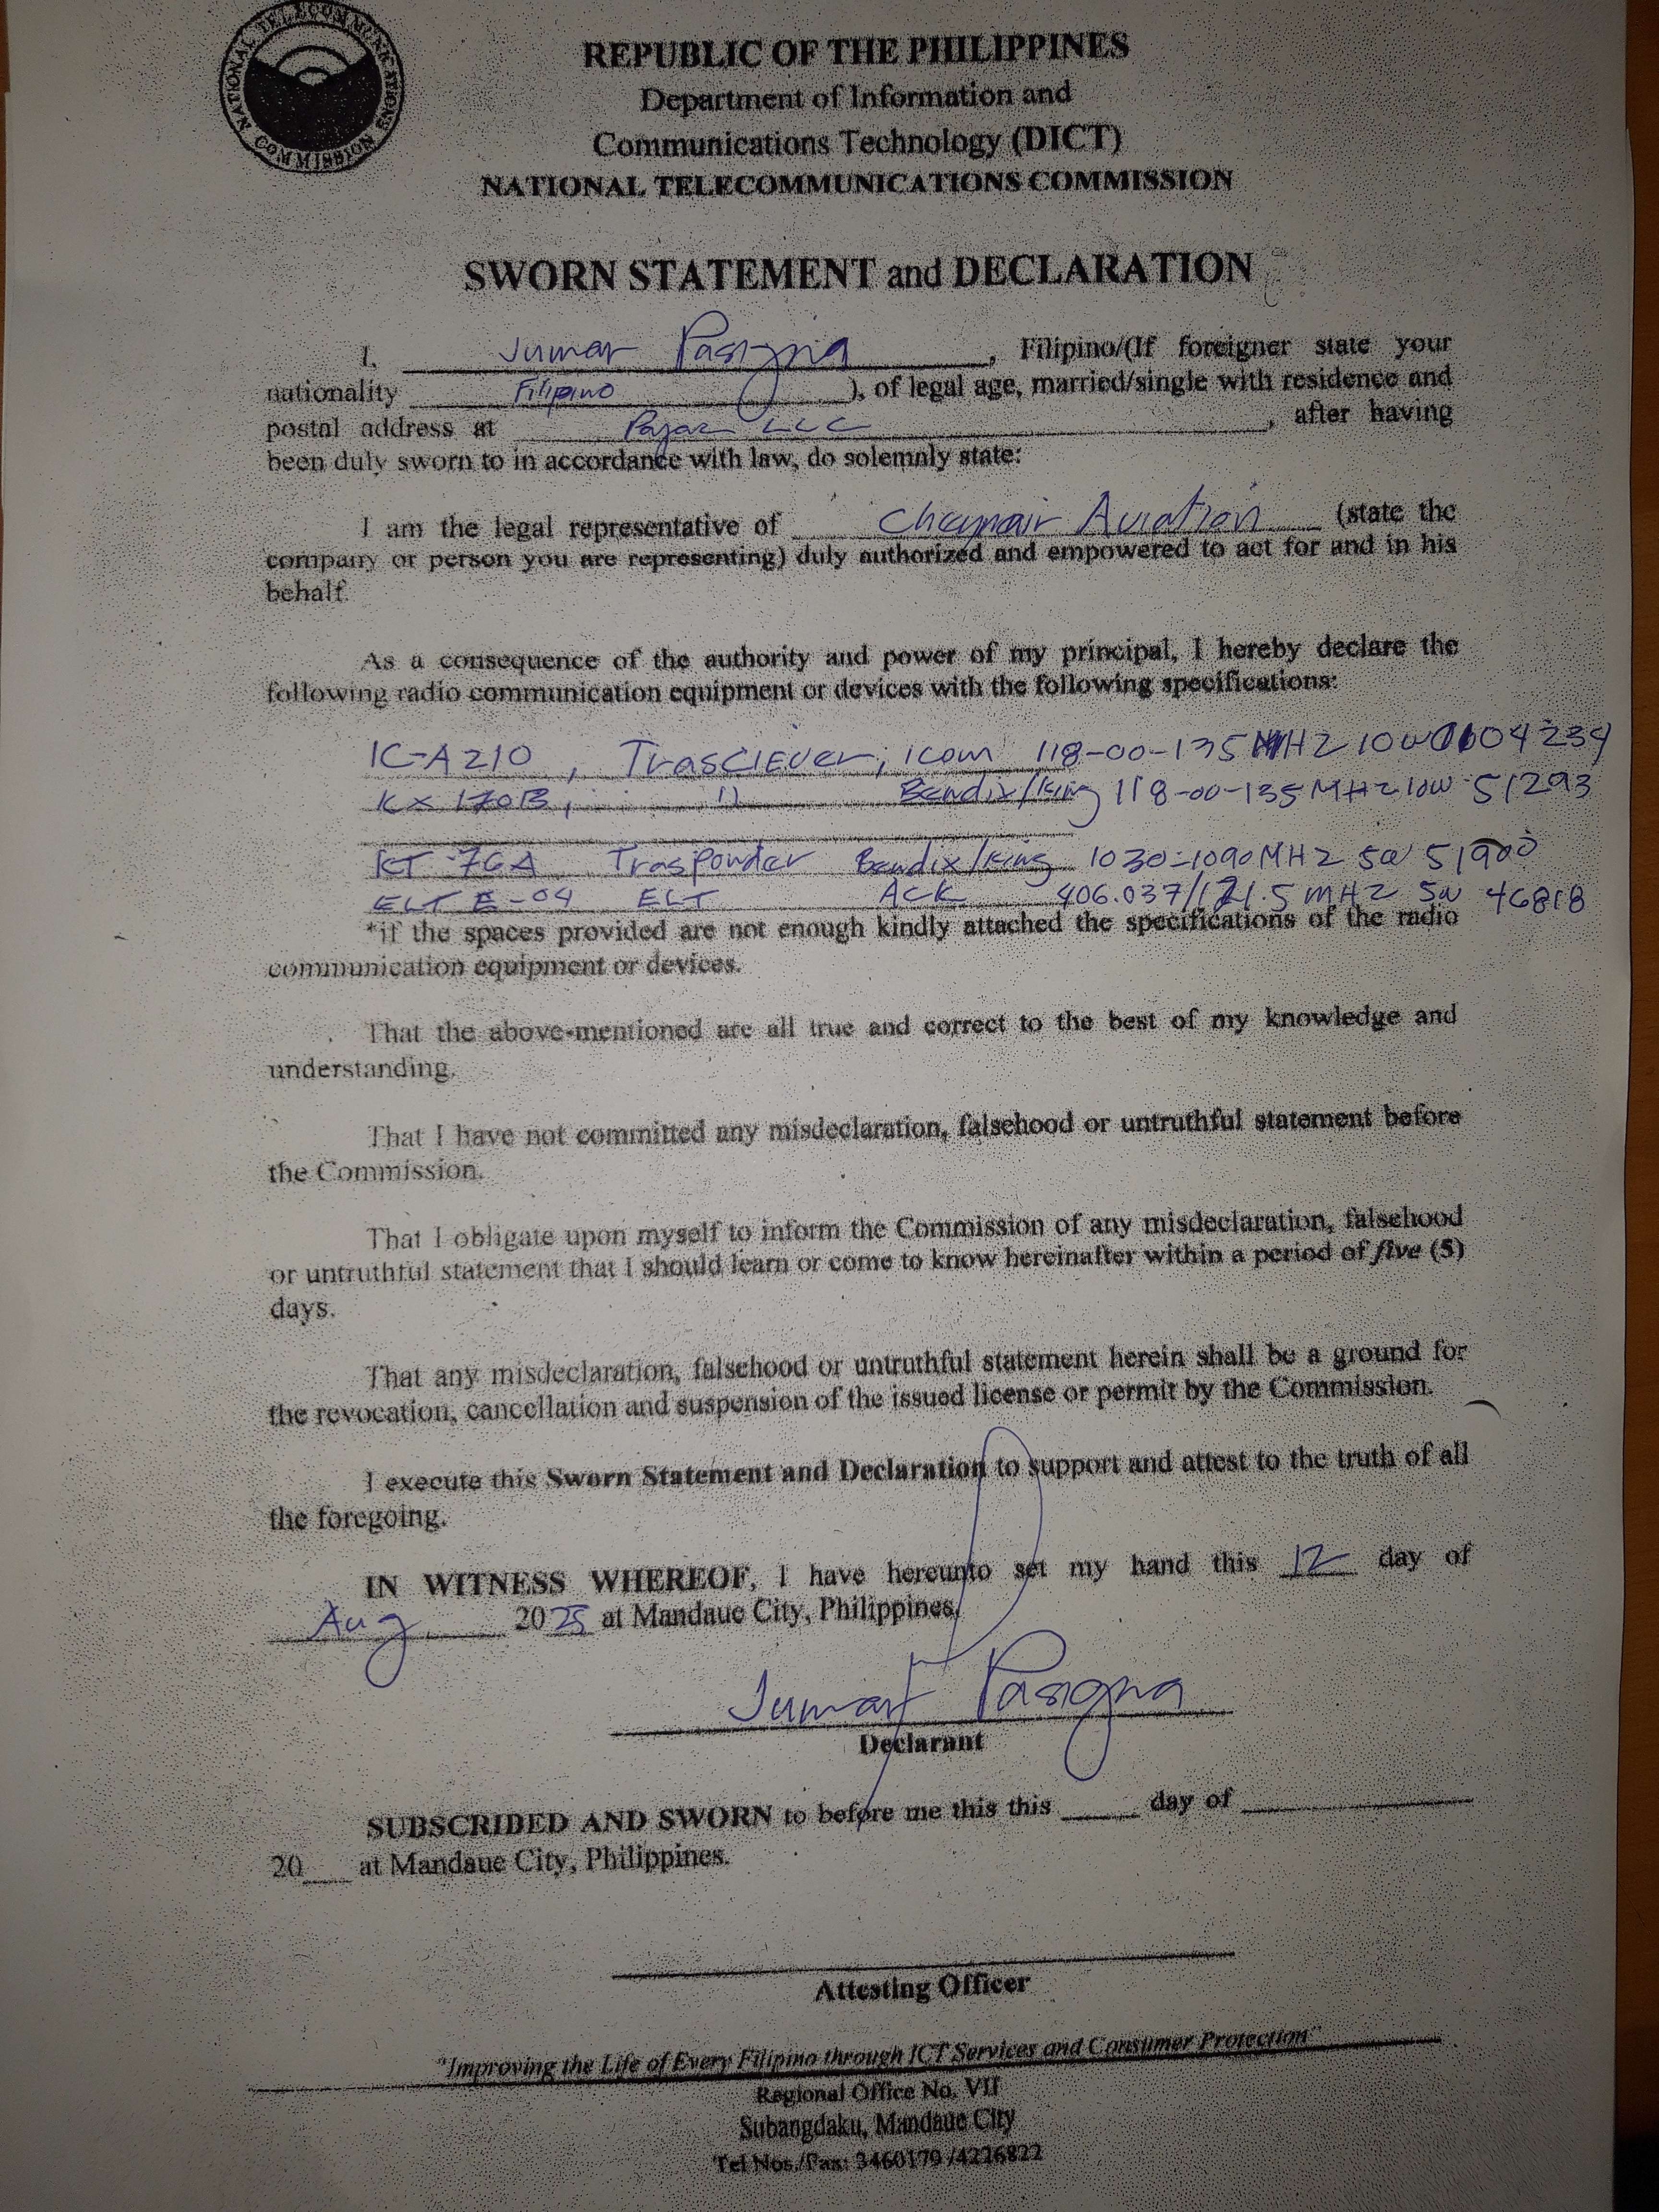 NATIONAL TELECOMMUNICATIONS COMMISSION
REPUBLIC OF THE PHILIPPINES
Department of Information and
Communications Technology (DICT)
NATIONAL TELECOMMUNICATIONS COMMISSION
SWORN STATEMENT and DECLARATION
I, Jumar Pasigna, Filipino/(If foreigner state your
nationality Filipino), of legal age, married/single with residence and
postal address at Pajac LLC, after having
been duly sworn to in accordance with law, do solemnly state:
I am the legal representative of Aviation (state the
company or person you are representing) duly authorized and empowered to act for and in his
behalf.
As a consequence of the authority and power of my principal, I hereby declare the
following radio communication equipment or devices with the following specifications:
IC-A210, TrasCIEver, icom 118-00-135 MHZ 10W 0604234
KX 170B, " Bendix/King 118-00-135 MHZ 10W 51293
KT-76A Trasponder Bendix/King 1030-1090 MHZ 5W 51900
ELT E-04 ELT Ack 406.037/121.5 MHZ 5W 46818
*if the spaces provided are not enough kindly attached the specifications of the radio
communication equipment or devices.
That the above-mentioned are all true and correct to the best of my knowledge and
understanding.
That I have not committed any misdeclaration, falsehood or untruthful statement before
the Commission.
That I obligate upon myself to inform the Commission of any misdeclaration, falsehood
or untruthful statement that I should learn or come to know hereinafter within a period of five (5)
days.
That any misdeclaration, falsehood or untruthful statement herein shall be a ground for
the revocation, cancellation and suspension of the issued license or permit by the Commission.
I execute this Sworn Statement and Declaration to support and attest to the truth of all
the foregoing.
IN WITNESS WHEREOF, I have hereunto set my hand this 12 day of
Aug 2025 at Mandaue City, Philippines.
Jumar Pasigna
Declarant
SUBSCRIBED AND SWORN to before me this this ____ day of ____
20__ at Mandaue City, Philippines.
Attesting Officer
"Improving the Life of Every Filipino through ICT Services and Consumer Protection"
Regional Office No. VII
Subangdaku, Mandaue City
Tel Nos./Fax: 3460179 /4226822